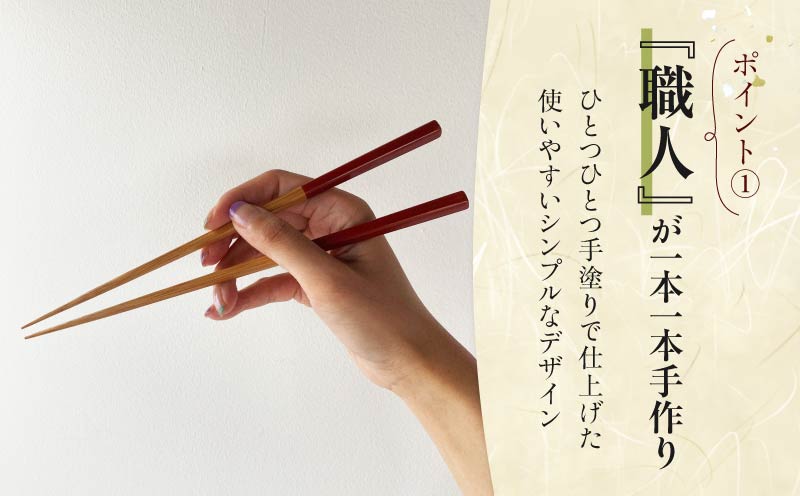 ポイント①
『職人』が一本一本手作り
ひとつひとつ手塗りで仕上げた
使いやすいシンプルなデザイン